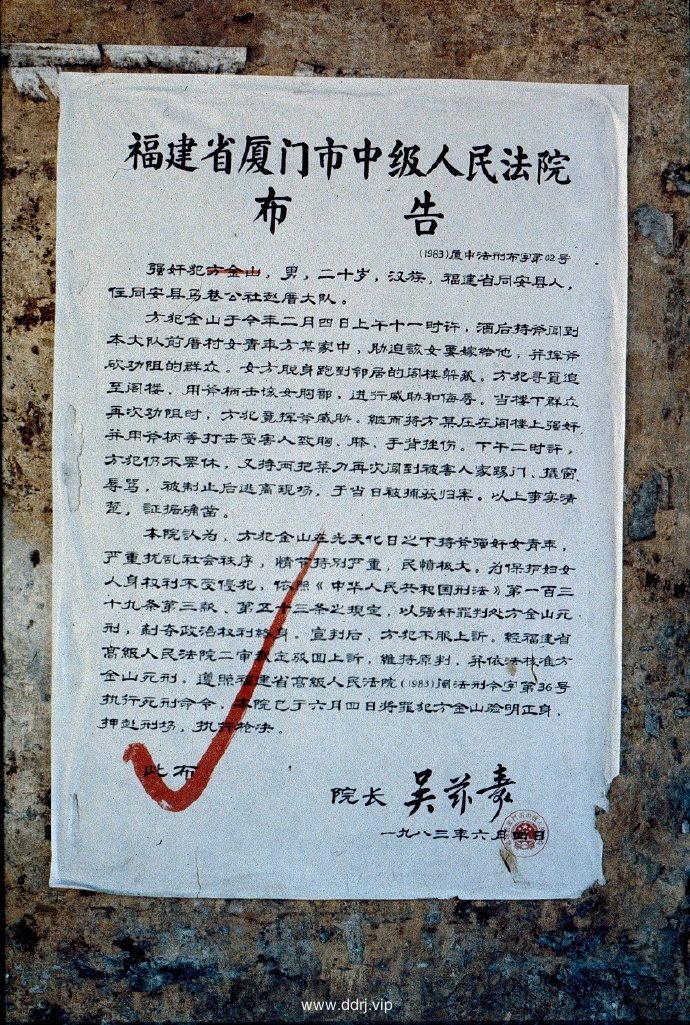 福建省厦门市中级人民法院
布 告
(1983)厦中法刑布字第02号
强奸犯方金山，男，二十岁，汉族，福建省同安县人，
住同安县马巷公社赵厝大队。
方犯金山于今年二月四日上午十一时许，酒后持斧闯到
本大队前厝村女青年方某家中，胁迫该女要嫁给他，并挥斧
砍劝阻的群众。女方脱身跑到邻居的阁楼躲藏。方犯寻觅追
至阁楼，用斧柄击该女胸部，进行威胁和侮辱。当楼下群众
再次劝阻时，方犯竟挥斧威胁。继而持方某压在阁楼上强奸，
并用斧柄等打击受害人致胸、膝、手背挫伤。下午二时许，
方犯仍不罢休，又持两把菜刀再次闯到被害人家踢门、撬窗、
辱骂，被制止后逃离现场，于当日被捕获归案。以上事实清
楚，证据确凿。
本院认为，方犯金山在光天化日之下持斧强奸女青年，
严重扰乱社会秩序，情节特别严重，民愤极大。为保护妇女
人身权利不受侵犯，依照《中华人民共和国刑法》第一百三
十九条第三款、第五十三条之规定，以强奸罪判处方金山死
刑，剥夺政治权利终身。宣判后，方犯不服上诉。经福建省
高级人民法院二审裁定驳回上诉，维持原判，并依法核准方
金山死刑。遵照福建省高级人民法院(1983)闽法刑令字第36号
执行死刑命令，本院已于六月四日将罪犯方金山验明正身，
押赴刑场，执行枪决。
此布
院长 吴
一九八三年六月四日
www.ddrj.vip